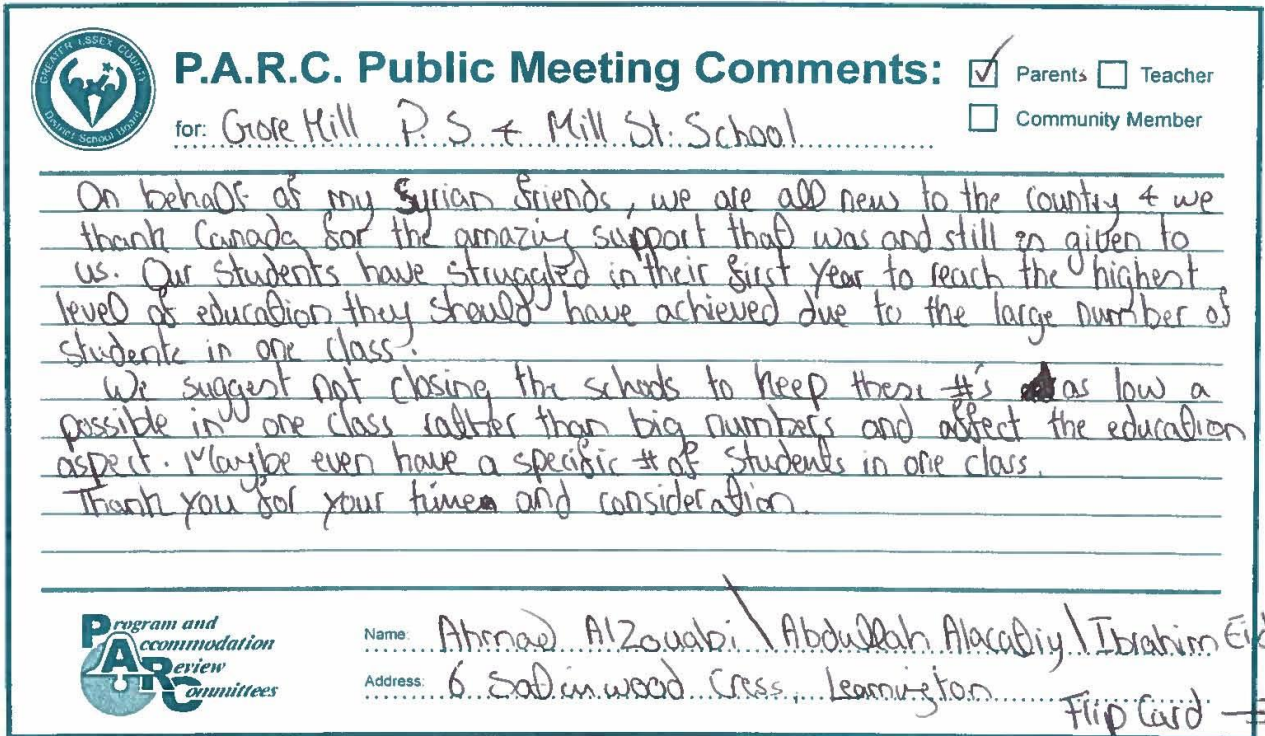 GREATER ESSEX COUNTY
District School Board
P.A.R.C. Public Meeting Comments:
Parents
Teacher
for: Gore Hill P.S & Mill St. School
Community Member
On behalf of my Syrian friends, we are all new to the country & we
thank Canada for the amazing support that was and still is given to
us. Our students have struggled in their first year to reach the highest
level of education they should have achieved due to the large number of
students in one class.
We suggest not closing the schools to keep these #'s as low a
possible in one class rather than big numbers and affect the education
aspect. Maybe even have a specific # of students in one class.
Thank you for your time and consideration.
Program and
Accommodation
Review
Committees
Name: Ahmad AlZouabi \ Abdullah \ Ibrahim Eid
Address: 6 Satinwood Cress, Leamington
Flip Card